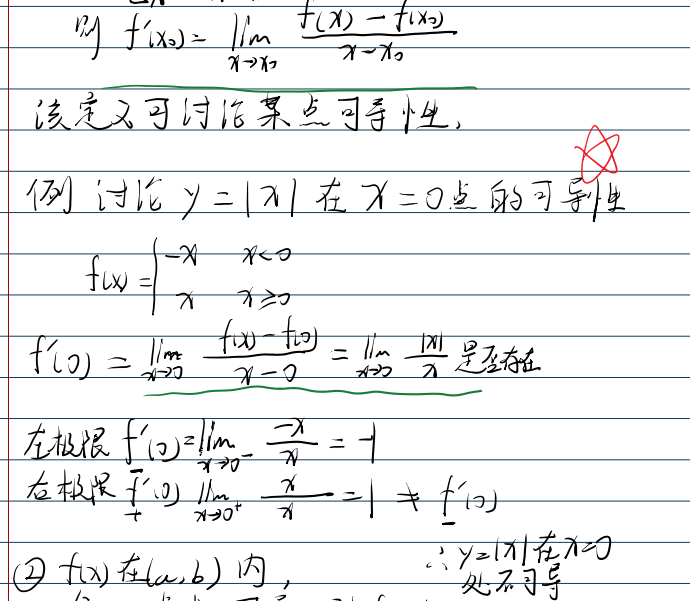 则 f'(x₀)= lim x→x₀ (f(x)-f(x₀))/(x-x₀)
该定义可讨论某点可导性.
例 讨论 y=|x| 在 x=0点的可导性
f(x)={ -x x<0
x x≥0
f'(0) = lim x→0 (f(x)-f(0))/(x-0) = lim x→0 |x|/x 是否存在
左极限 f'₋(0)=lim x→0⁻ -x/x = -1
右极限 f'₊(0) lim x→0⁺ x/x =1 ≠ f'₋(0)
∴ y=|x|在x=0
处不可导
② f(x)在(a,b)内,